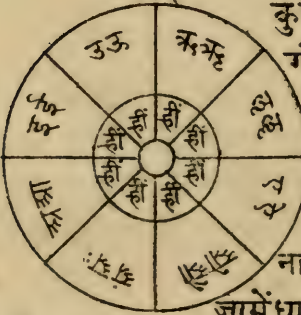 उऊ
ऋॠ
ऌॡ
एऐ
ओऔ
अंअः
अआ
इई
ह्रीं
ह्रीं
ह्रीं
ह्रीं
ह्रीं
ह्रीं
ह्रीं
ह्रीं
कु
ना
जामें